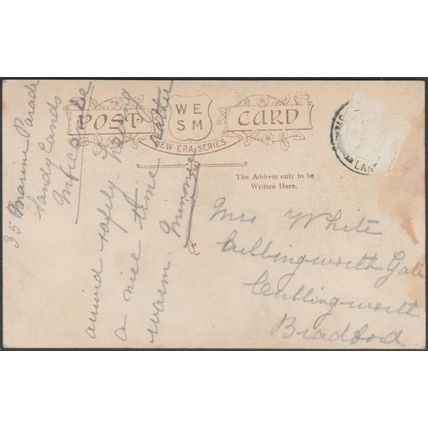 POST CARD
WE
SM
NEW ERA SERIES
The Address only to be
Written Here.
35 Marine Parade
Sandylands
Morecambe
arrived safely. having
a nice time rather
warm. Minnie
Mrs White
Cullingworth Gate
Cullingworth
Bradford